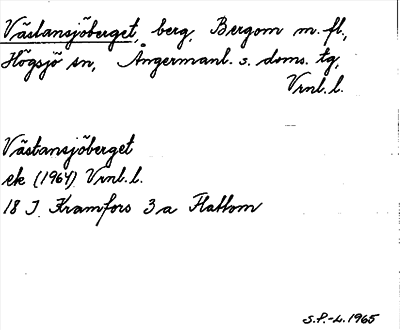 Västansjöberget, berg, Bergom m.fl.,
Högsjö sn, Ångermanl. s. doms. tg,
Vrnl. l.
Västansjöberget
ek (1964) Vrnl. l.
18 J Kramfors 3 a Flattom
S.P.-L. 1965